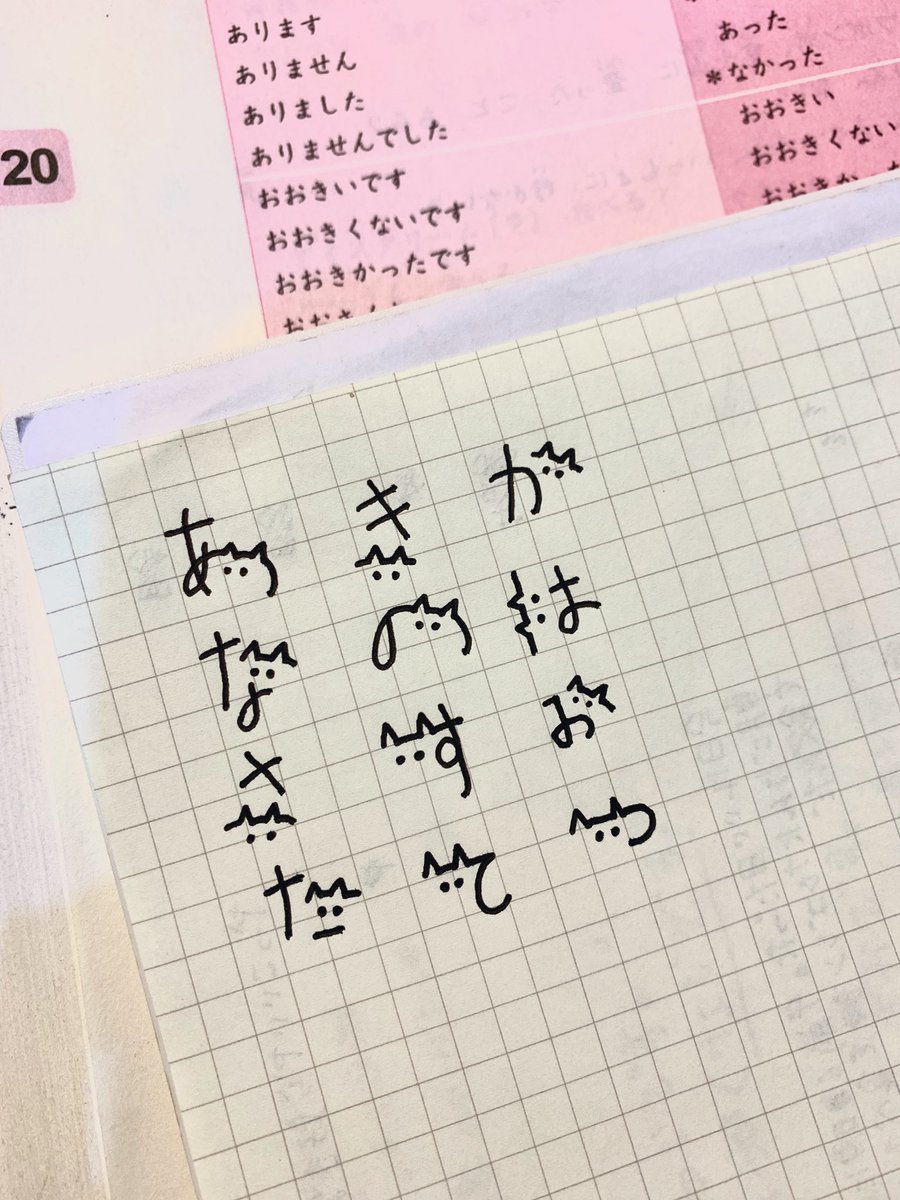 20
あります
ありません
ありました
ありませんでした
おおきいです
おおきくないです
おおきかったです
あった
*なかった
おおきい
おおきくない
あ き か
な の は
さ す お
た て つ